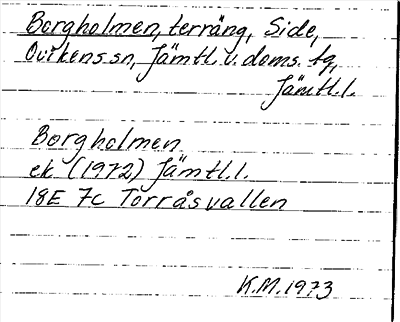 Borgholmen, terräng, Side,
Ovikens sn, Jämtl. v. doms. tg,
Jämtl. l.
Borgholmen
ek. (1972) Jämtl. l.
18E 7c Torråsvallen
K.M. 1973